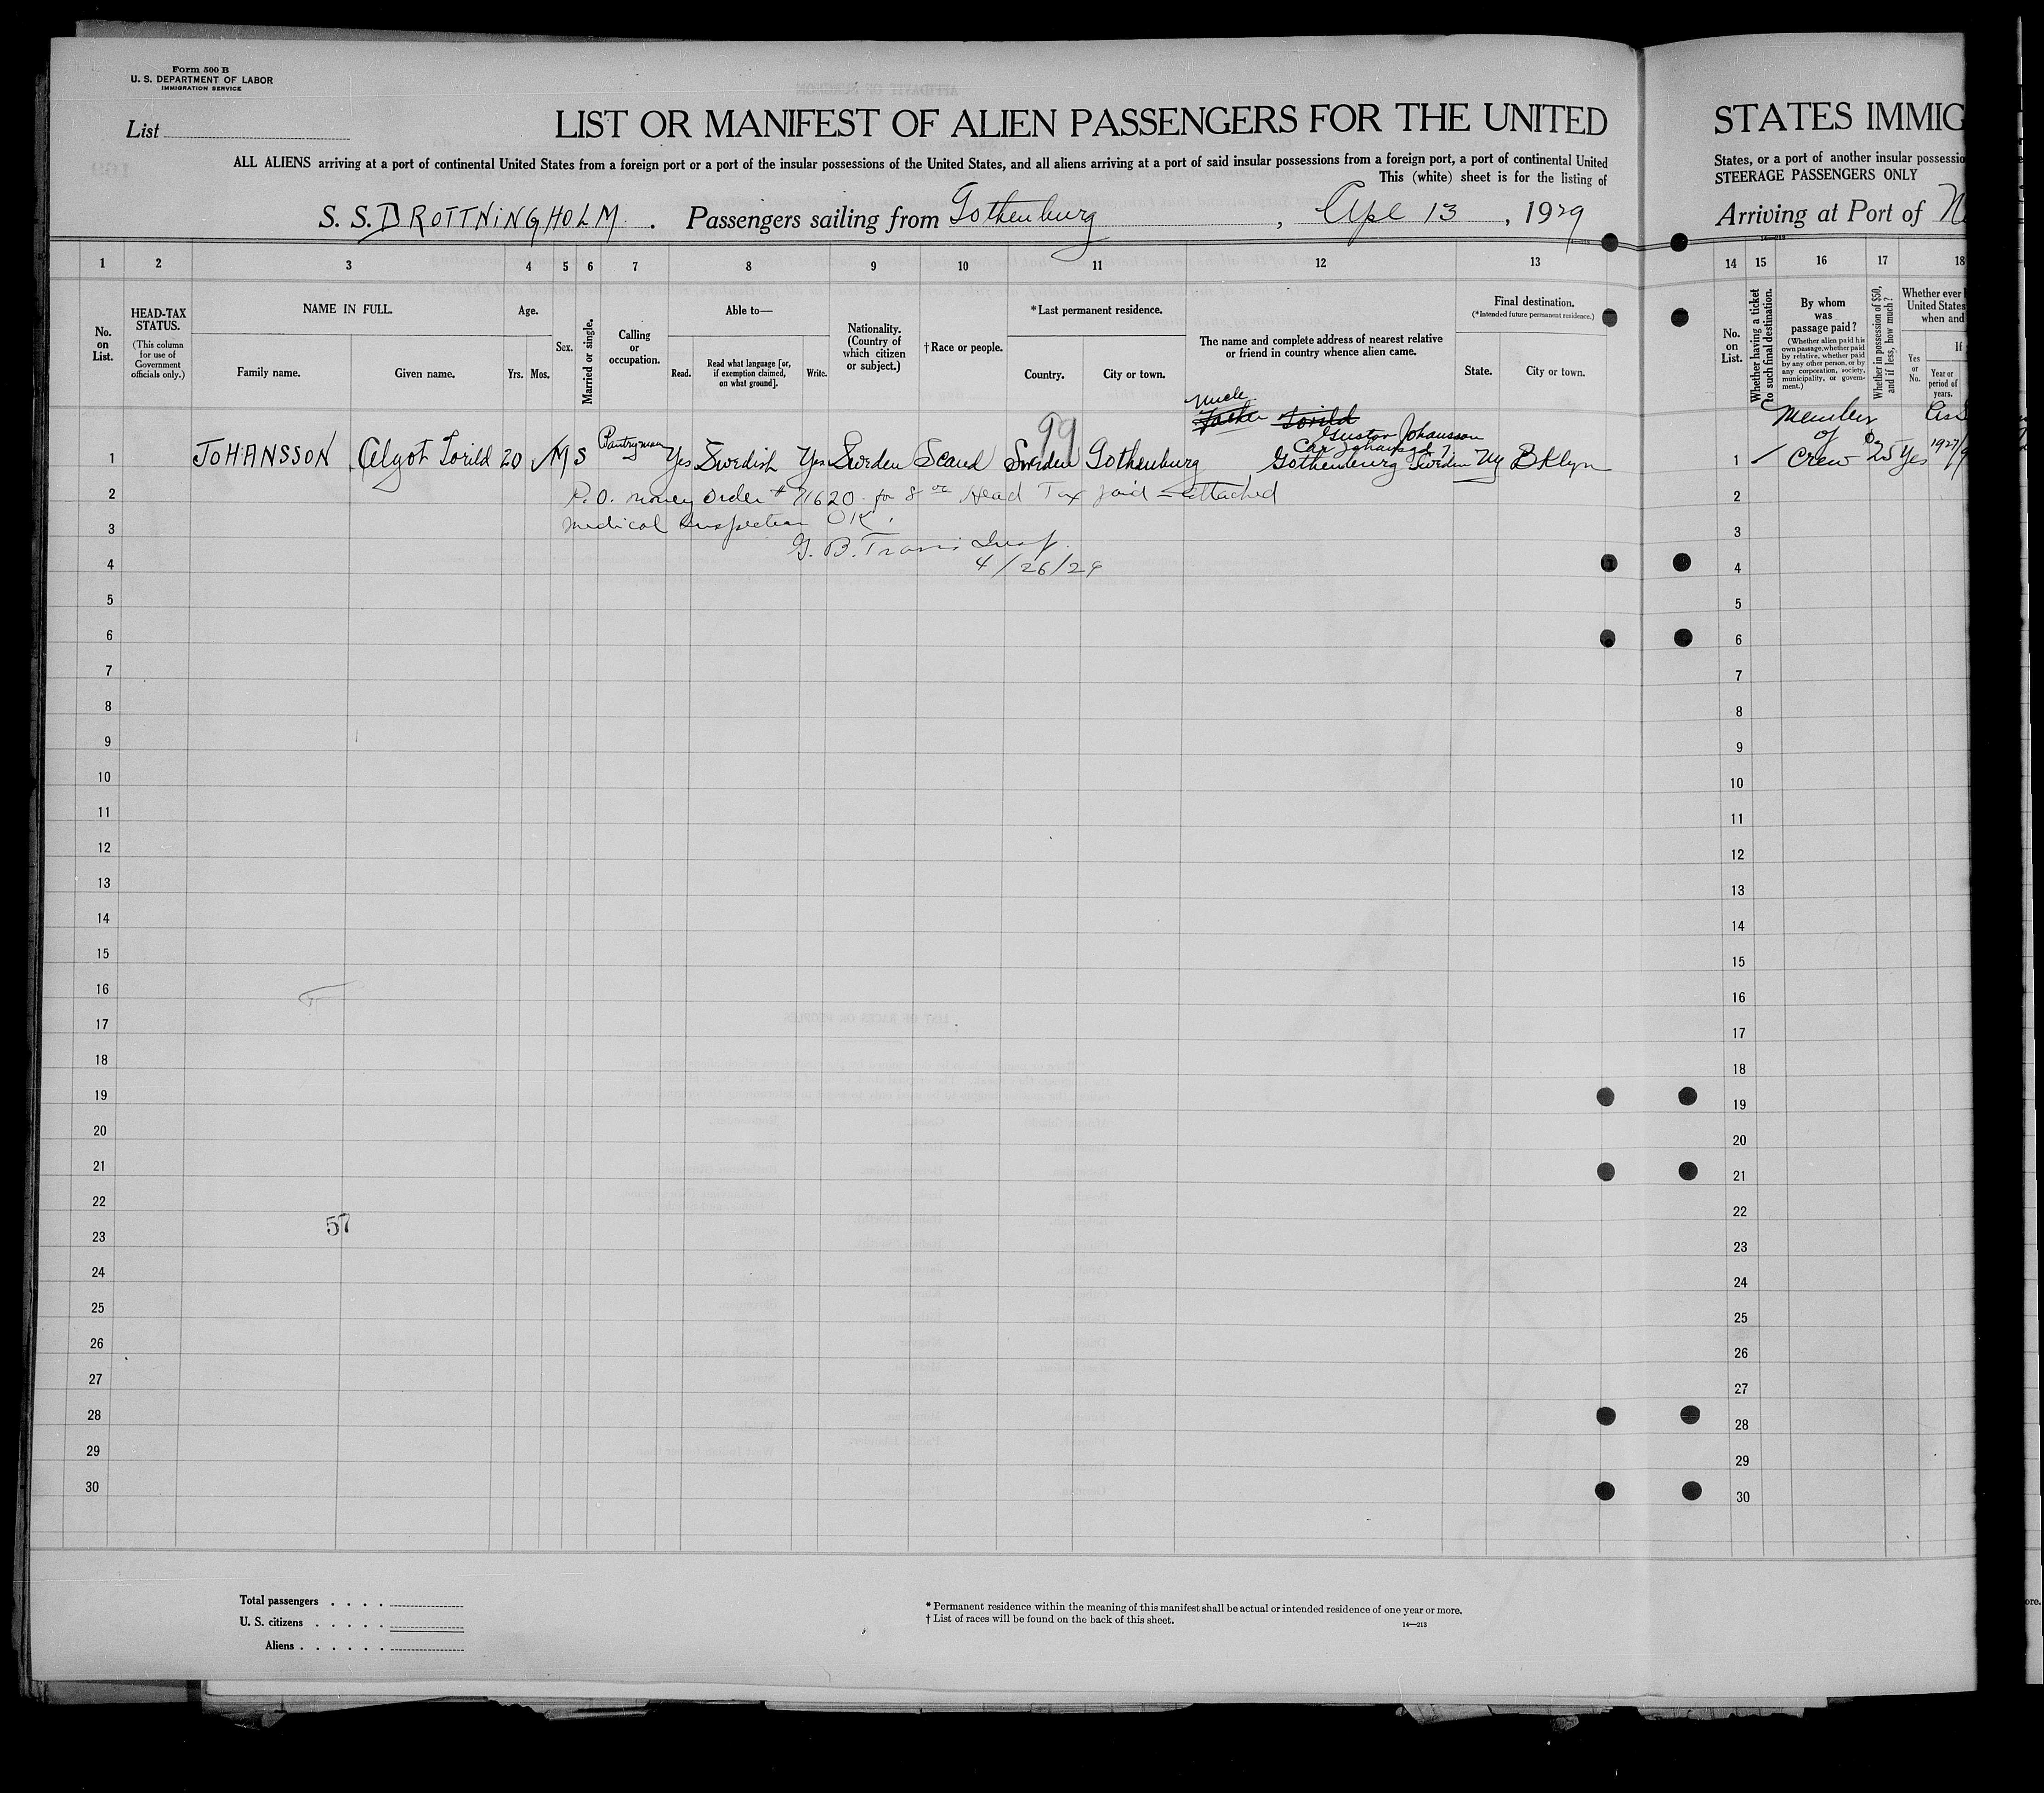 Form 500 B
U. S. DEPARTMENT OF LABOR
IMMIGRATION SERVICE
List
LIST OR MANIFEST OF ALIEN PASSENGERS FOR THE UNITED
ALL ALIENS arriving at a port of continental United States from a foreign port or a port of the insular possessions of the United States, and all aliens arriving at a port of said insular possessions from a foreign port, a port of continental United
This (white) sheet is for the listing of
S. S. DROTTNINGHOLM. Passengers sailing from Gothenburg, Apl 13, 1929
1 2 3 4 5 6 7 8 9 10 11 12 13
No. on List.
HEAD-TAX STATUS.
(This column for use of Government officials only.)
NAME IN FULL.
Family name. Given name.
Age.
Yrs. Mos.
Sex.
Married or single.
Calling or occupation.
Able to—
Read. Read what language [or, if exemption claimed, on what ground]. Write.
Nationality. (Country of which citizen or subject.)
†Race or people.
*Last permanent residence.
Country. City or town.
The name and complete address of nearest relative or friend in country whence alien came.
Final destination.
(*Intended future permanent residence.)
State. City or town.
Uncle
Father Torild
Gustav Johansson
99
1 JOHANSSON Algot Torild 20 M S Pantryman Yes Swedish Yes Sweden Scand Sweden Gothenburg Gothenburg Sweden NY Bklyn
2 P.O. money order # 71620 for 8 00 Head Tax paid – attached
3 Medical Inspection OK.
G. B. Travis Insp.
4 4/26/29
5
6
7
8
9
10
11
12
13
14
15
16
17
18
19
20
21
22
57
23
24
25
26
27
28
29
30
Total passengers
U. S. citizens
Aliens
* Permanent residence within the meaning of this manifest shall be actual or intended residence of one year or more.
† List of races will be found on the back of this sheet.
14—213
STATES IMMIG
States, or a port of another insular possessio
STEERAGE PASSENGERS ONLY
Arriving at Port of N
14 15 16 17 18
No. on List.
Whether having a ticket to such final destination.
By whom was passage paid?
(Whether alien paid his own passage, whether paid by relative, whether paid by any other person, or by any corporation, society, municipality, or government.)
Whether in possession of $50, and if less, how much?
Whether ever
United States
when and
If
Yes or No.
Year or period of years.
1 Member of Crew $25 Yes 1927/9
2
3
4
5
6
7
8
9
10
11
12
13
14
15
16
17
18
19
20
21
22
23
24
25
26
27
28
29
30